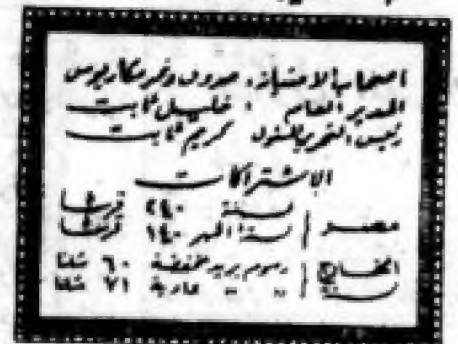 اصحاب الامتياز : صروف ونمر ومكاريوس
المدير العام : خليل ثابت
رئيس التحرير المسئول كريم ثابت
الاشتراكات
مصر { لسنة ٢٤٠ قرشا
لستة اشهر ١٤٠ قرشا
الخارج { رسوم بريد مخفضة ٦٠ شلنا
سنة { " " عادية ٧١ شلنا